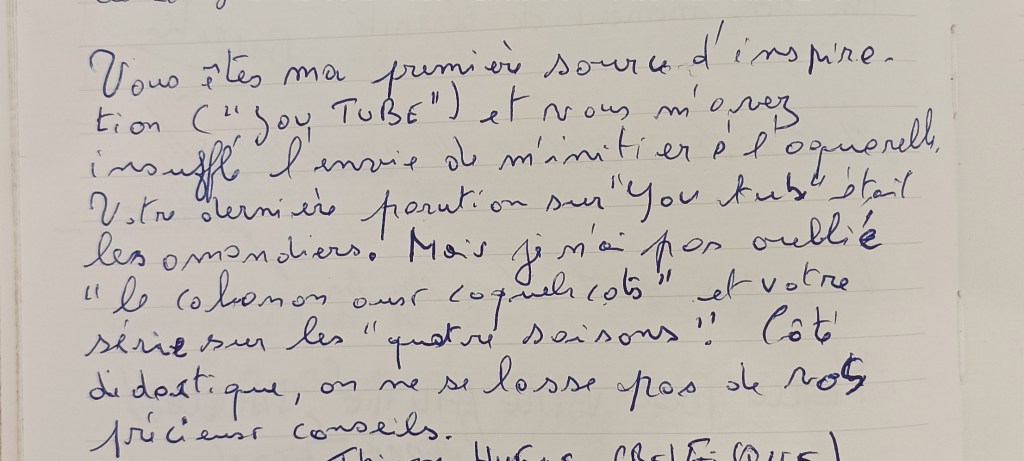 Vous êtes ma première source d'inspira-
tion ("You TUBE") et vous m'avez
insufflé l'envie de m'initier à l'aquarelle.
Votre dernière parution sur "You tube" était
les amandiers. Mais je n'ai pas oublié
"le cabanon aux coquelicots" et votre
série sur les "quatre saisons". Côté
didactique, on ne se lasse pas de vos
précieux conseils.